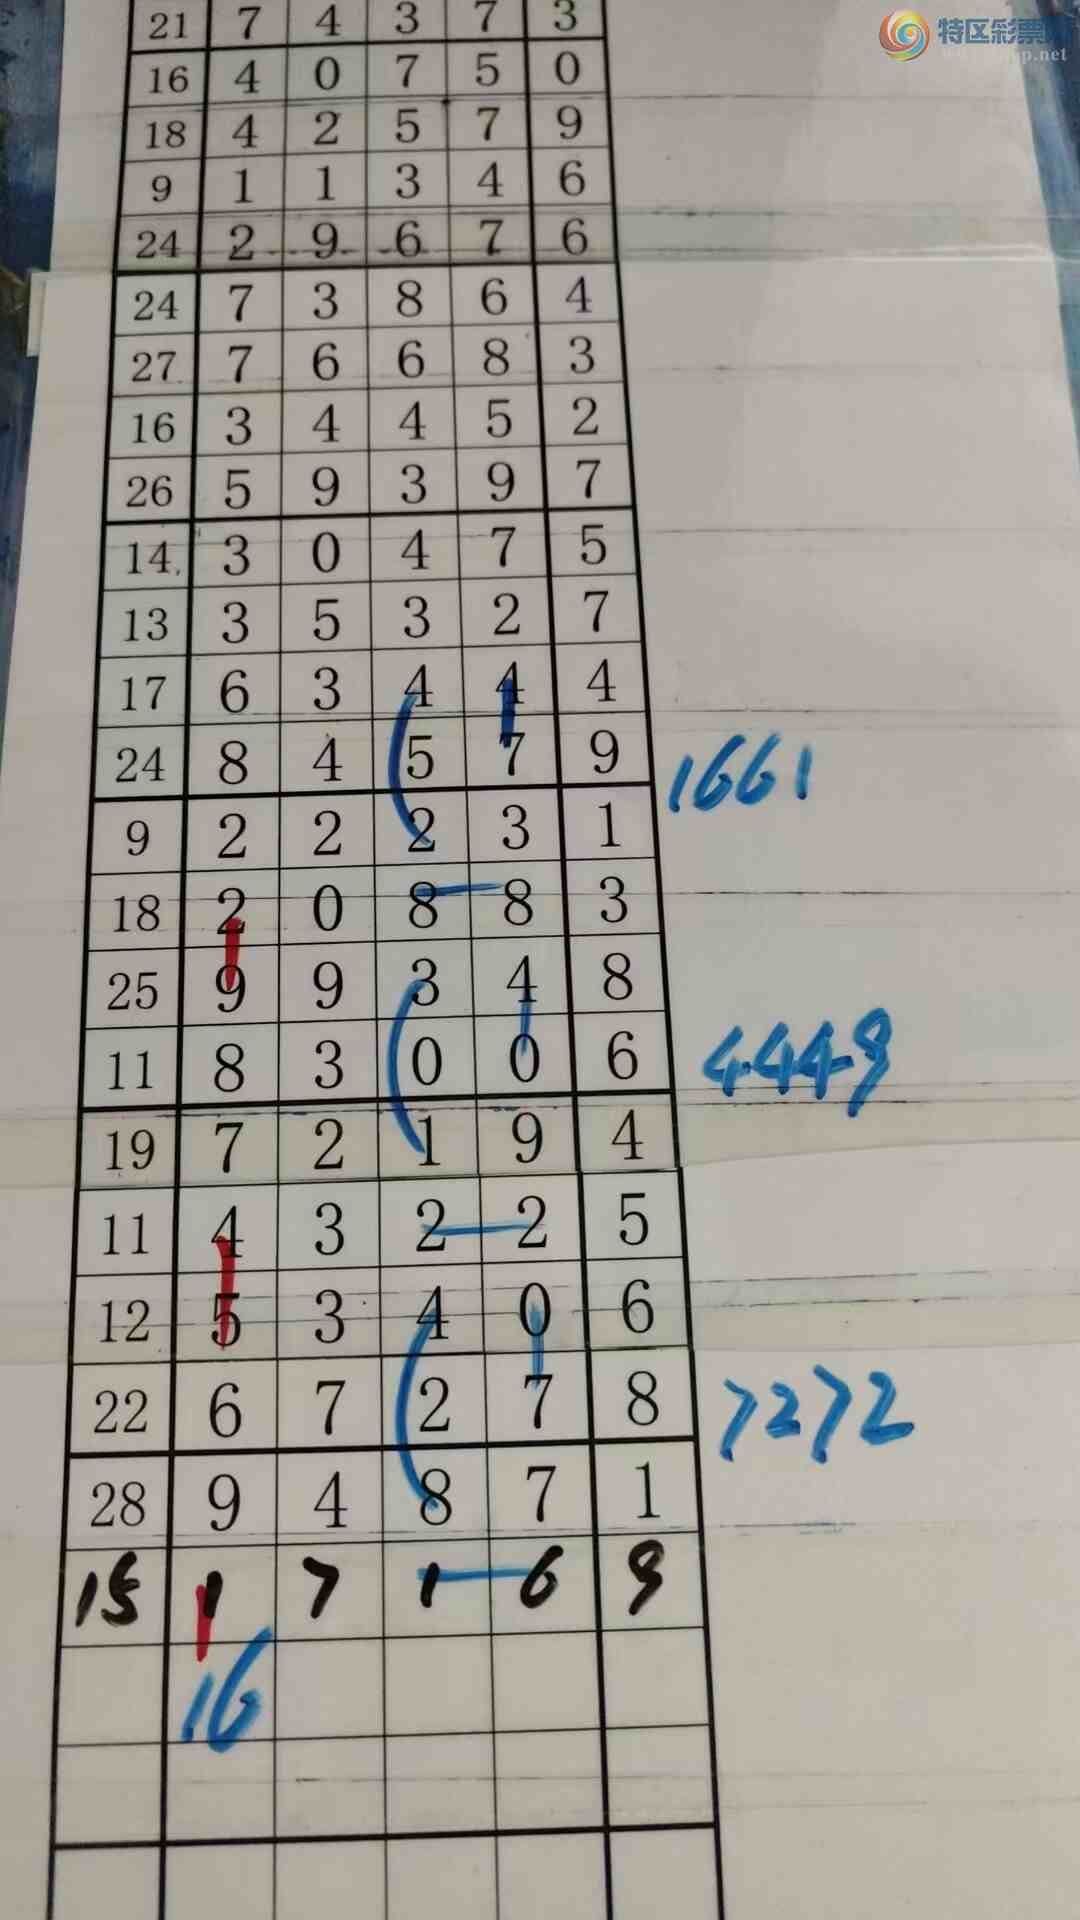 特区彩票
p.net
21 7 4 3 7 3
16 4 0 7 5 0
18 4 2 5 7 9
9 1 1 3 4 6
24 2 9 6 7 6
24 7 3 8 6 4
27 7 6 6 8 3
16 3 4 4 5 2
26 5 9 3 9 7
14 3 0 4 7 5
13 3 5 3 2 7
17 6 3 4 4 4
24 8 4 5 7 9
1661
9 2 2 2 3 1
18 2 0 8 8 3
25 9 9 3 4 8
11 8 3 0 0 6
4449
19 7 2 1 9 4
11 4 3 2 2 5
12 5 3 4 0 6
22 6 7 2 7 8
7272
28 9 4 8 7 1
15 1 7 1 6 9
16